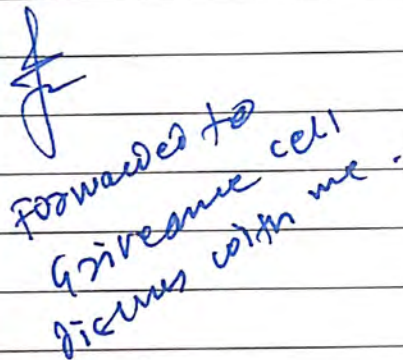 Forwarded to
Griveance cell
Discuss with me.